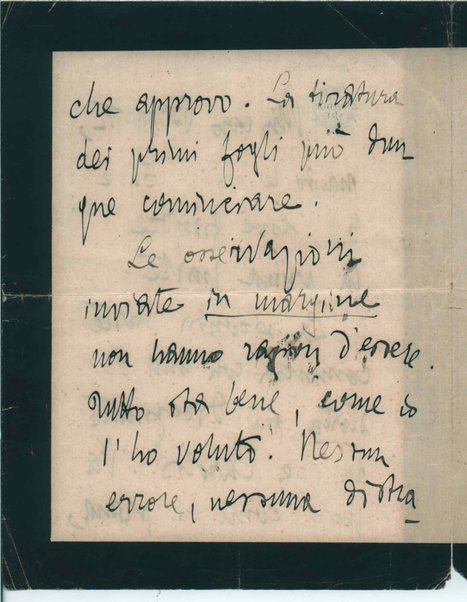 che approvo. La tiratura
dei primi fogli può dun
que cominciare.
Le osservazioni
inviate in margine
non hanno ragion d'essere.
Tutto sta bene, come io
l'ho voluto. Nessun
errore, nessuna distra